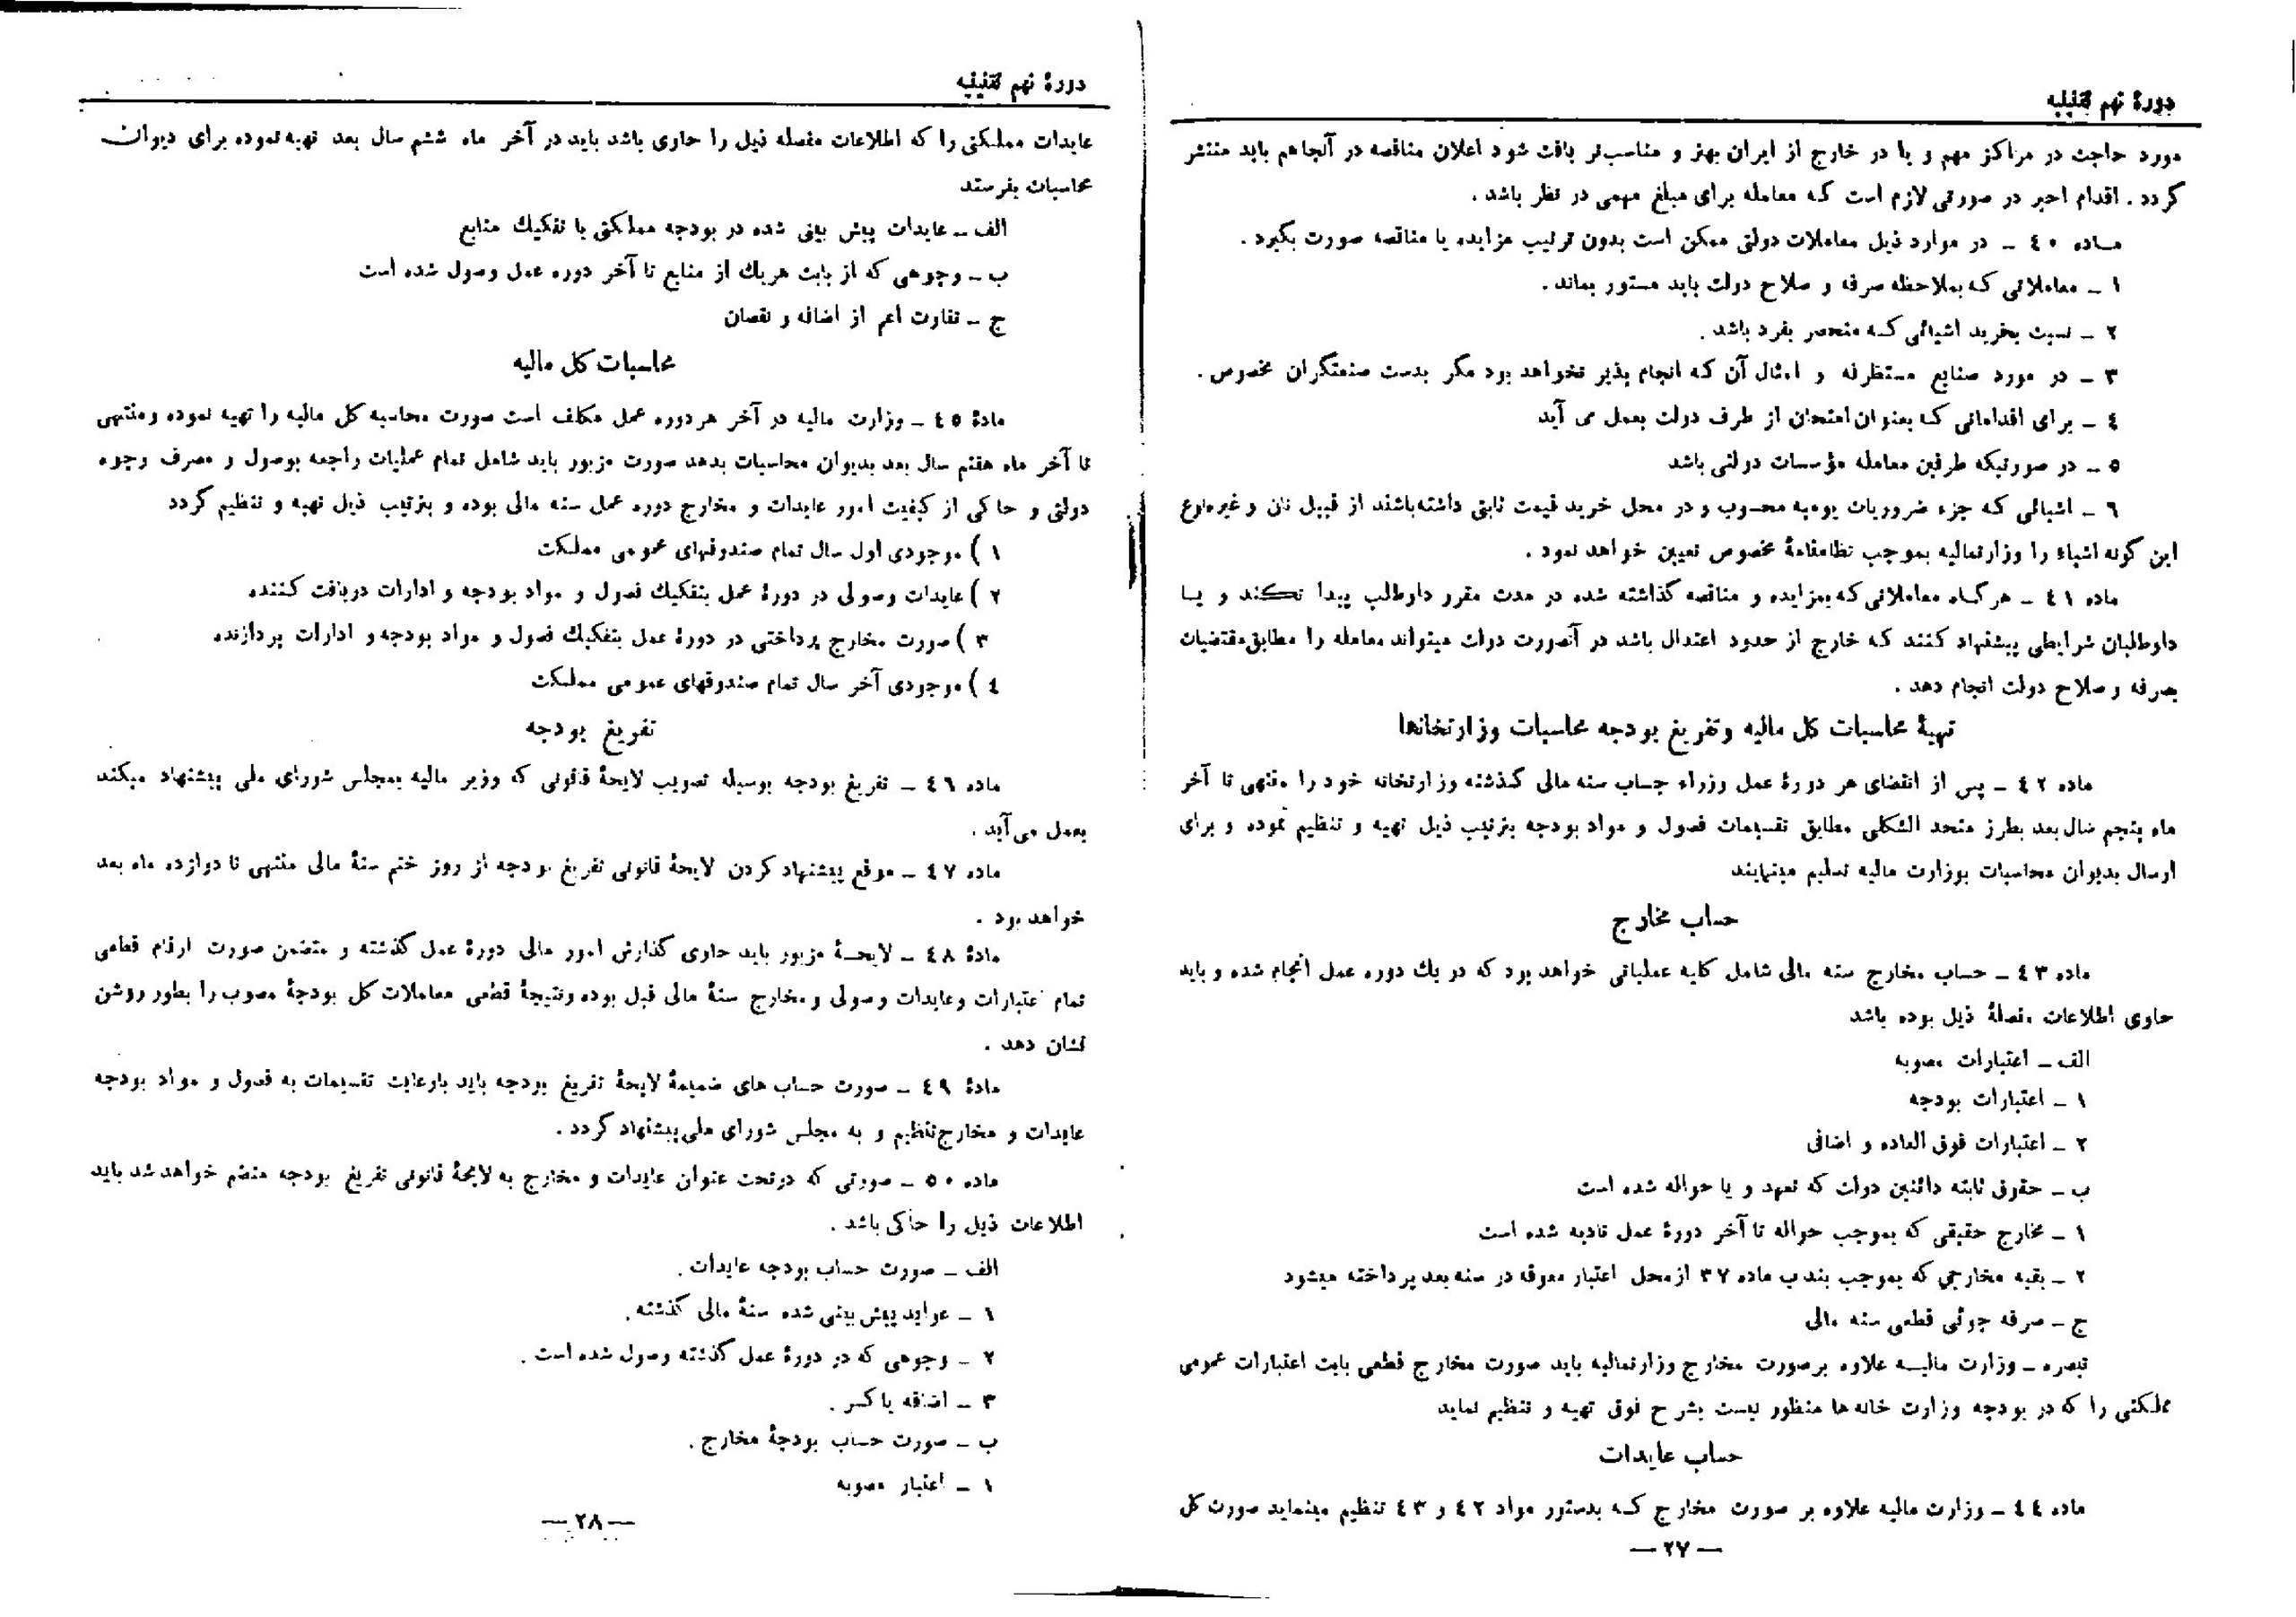 دورهٔ نهم تقنینیه
مورد حاجت در مراکز مهم و یا در خارج از ایران بهتر و مناسب‌تر یافت شود اعلان مناقصه در آنجا هم باید منتشر
گردد . اقدام اخیر در صورتی لازم است که معامله برای مبلغ مهمی در نظر باشد .
مـاده ٤٠ ـ در موارد ذیل معاملات دولتی ممکن است بدون ترتیب مزایده یا مناقصه صورت بگیرد .
١ ـ معاملاتی که بملاحظه صرفه و صلاح دولت باید مستور بماند .
٢ ـ نسبت بخرید اشیائی کـه منحصر بفرد باشد .
٣ ـ در مورد صنایع مستظرفه و امثال آن که انجام پذیر نخواهد بود مگر بدست صنعتگران مخصوص .
٤ ـ برای اقداماتی کـه بعنوان امتحان از طرف دولت بعمل می آید
٥ ـ در صورتیکه طرفین معامله مؤسسات دولتی باشد
٦ ـ اشیائی که جزء ضروریات یومیه محسوب و در محل خرید قیمت ثابتی داشته‌باشند از قبیل نان و غیره‌نوع
این گونه اشیاء را وزارتمالیه بموجب نظامنامهٔ مخصوص تعیین خواهد نمود .
ماده ٤١ ـ هرگـاه معاملاتی که بمزایده و مناقصه گذاشته شده در مدت مقرر داوطلب پیدا نکـند و یـا
داوطلبان شرایطی پیشنهاد کنند که خارج از حدود اعتدال باشد در آنصورت دولت میتواند معامله را مطابق مقتضیات
بصرفه و صلاح دولت انجام دهد .
تهیهٔ محاسبات کل مالیه و تفریغ بودجه محاسبات وزارتخانها
ماده ٤٢ ـ پس از انقضای هر دورهٔ عمل وزراء حساب سنه مالی گذشته وزارتخانه خود را منتهی تا آخر
ماه پنجم سال بعد بطرز متحد الشکلی مطابق تقسیمات فصول و مواد بودجه بترتیب ذیل تهیه و تنظیم نموده و برای
ارسال بدیوان محاسبات بوزارت مالیه تسلیم مینمایند
حساب مخارج
ماده ٤٣ ـ حساب مخارج سنه مالی شامل کلیه عملیاتی خواهد بود که در یک دوره عمل انجام شده و باید
حاوی اطلاعات مفصلهٔ ذیل بوده باشد
الف ـ اعتبارات مصوبه
١ ـ اعتبارات بودجه
٢ ـ اعتبارات فوق العاده و اضافی
ب ـ حقوق ثابته دائنین دولت که تعهد و یا حواله شده است
١ ـ مخارج حقیقی که بموجب حواله تا آخر دورهٔ عمل تادیه شده است
٢ ـ بقیه مخارجی که بموجب بند ب ماده ٣٧ از محل اعتبار معوقه در سنه بعد پرداخته میشود
ج ـ صرفه جوئی قطعی سنه مالی
تبصره ـ وزارت مالیـه علاوه بر صورت مخارج وزارتمالیه باید صورت مخارج قطعی بابت اعتبارات عمومی
مملکتی را که در بودجه وزارت خانه ها منظور نیست بشرح فوق تهیه و تنظیم نماید
حساب عایدات
ماده ٤٤ ـ وزارت مالیه علاوه بر صورت مخارج کـه بدستور مواد ٤٢ و ٤٣ تنظیم مینماید صورت کل
— ٢٧ —
دورهٔ نهم تقنینیه
عایدات مملکتی را که اطلاعات مفصله ذیل را حاوی باشد باید در آخر ماه ششم سال بعد تهیه نموده برای دیوان
محاسبات بفرستد
الف ـ عایدات پیش بینی شده در بودجه مملکتی با تفکیک منابع
ب ـ وجوهی که از بابت هریک از منابع تا آخر دوره عمل وصول شده است
ج ـ تفاوت اعم از اضافه و نقصان
محاسبات کل مالیه
مادهٔ ٤٥ ـ وزارت مالیه در آخر هر دوره عمل مکلف است صورت محاسبه کل مالیه را تهیه نموده و منتهی
تا آخر ماه هفتم سال بعد بدیوان محاسبات بدهد صورت مزبور باید شامل تمام عملیات راجعه بوصول و مصرف وجوه
دولتی و حاکی از کیفیت امور عایدات و مخارج دوره عمل سنه مالی بوده و بترتیب ذیل تهیه و تنظیم گردد
١ ) موجودی اول سال تمام صندوقهای عمومی مملکت
٢ ) عایدات وصولی در دورهٔ عمل بتفکیک فصول و مواد بودجه و ادارات دریافت کننده
٣ ) صورت مخارج پرداختی در دورهٔ عمل بتفکیک فصول و مواد بودجه و ادارات پردازنده
٤ ) موجودی آخر سال تمام صندوقهای عمومی مملکت
تفریغ بودجه
ماده ٤٦ ـ تفریغ بودجه بوسیله تصویب لایحهٔ قانونی که وزیر مالیه بمجلس شورای ملی پیشنهاد میکند
بعمل می‌آید .
ماده ٤٧ ـ موقع پیشنهاد کردن لایحهٔ قانونی تفریغ بودجه از روز ختم سنهٔ مالی منتهی تا دوازده ماه بعد
خواهد بود .
مادهٔ ٤٨ ـ لایحـهٔ مزبور باید حاوی گذارش امور مالی دورهٔ عمل گذشته و متضمن صورت ارقام قطعی
تمام اعتبارات و عایدات وصولی و مخارج سنهٔ مالی قبل بوده و نتیجهٔ قطعی معاملات کل بودجهٔ مصوب را بطور روشن
نشان دهد .
مادهٔ ٤٩ ـ صورت حساب های ضمیمهٔ لایحهٔ تفریغ بودجه باید بارعایت تقسیمات به فصول و مواد بودجه
عایدات و مخارج تنظیم و به مجلس شورای ملی پیشنهاد گردد .
ماده ٥٠ ـ صورتی که در تحت عنوان عایدات و مخارج به لایحهٔ قانونی تفریغ بودجه منضم خواهد شد باید
اطلاعات ذیل را حاکی باشد .
الف ـ صورت حساب بودجه عایدات .
١ ـ عواید پیش بینی شده سنهٔ مالی گذشته .
٢ ـ وجوهی که در دورهٔ عمل گذشته وصول شده است .
٣ ـ اضافه یا کسر .
ب ـ صورت حساب بودجهٔ مخارج .
١ ـ اعتبار مصوبه
— ٢٨ —